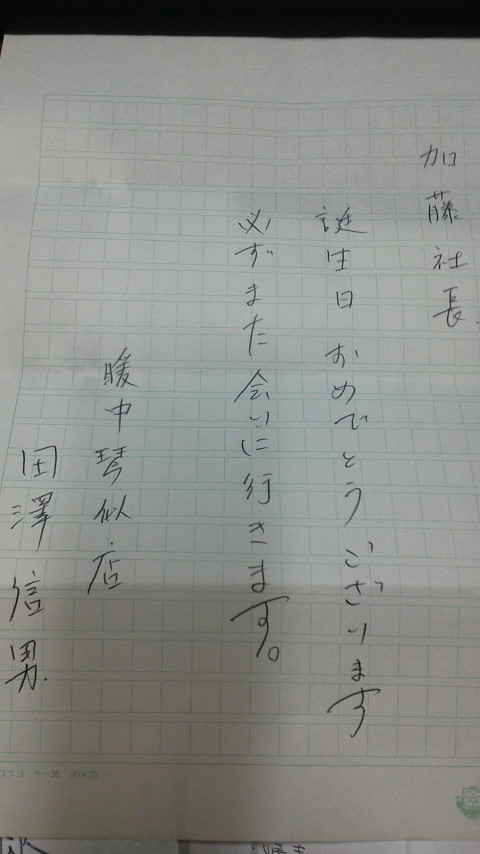 加藤社長
誕生日おめでとうございます
必ずまた会いに行きます。
暖中琴似店
田澤信男
コクヨ ケー35 20×20